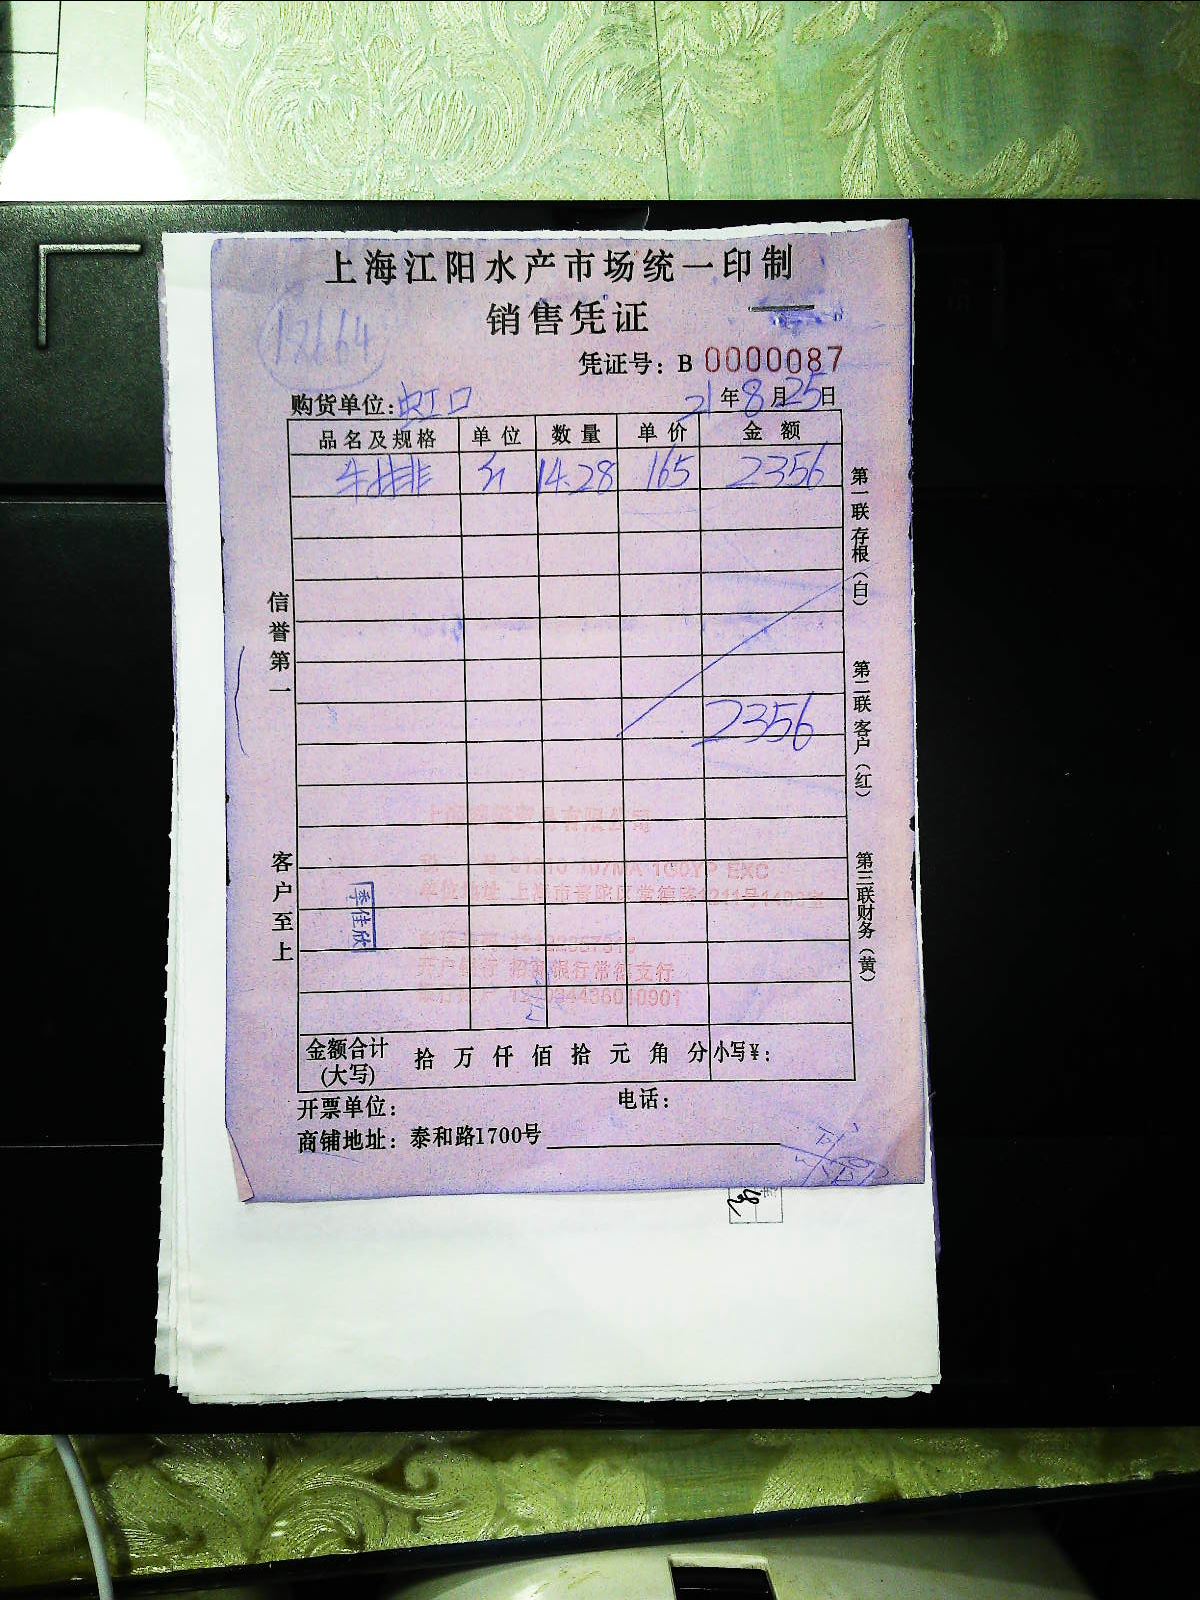 上海江阳水产市场统一印制
销售凭证
12664
凭证号：B 0000087
购货单位:虹口 21年8月25日
品名及规格 单位 数量 单价 金额
牛排 斤 14.28 165 2356
2356
信誉第一
客户至上
第一联存根（白）
第二联客户（红）
第三联财务（黄）
季佳欣
单位地址 上海市普陀区常德路1211号
开户银行 招商银行常德支行
金额合计(大写) 拾 万 仟 佰 拾 元 角 分 小写¥：
开票单位： 电话：
商铺地址：泰和路1700号